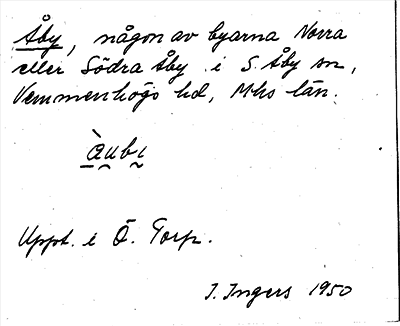 Åby, någon av byarna Norra
eller Södra Åby i S. Åby sn,
Vemmenhögs hd, Mhs län.
àu̯bı
Uppt. i Ö. Torp.
I. Ingers 1950